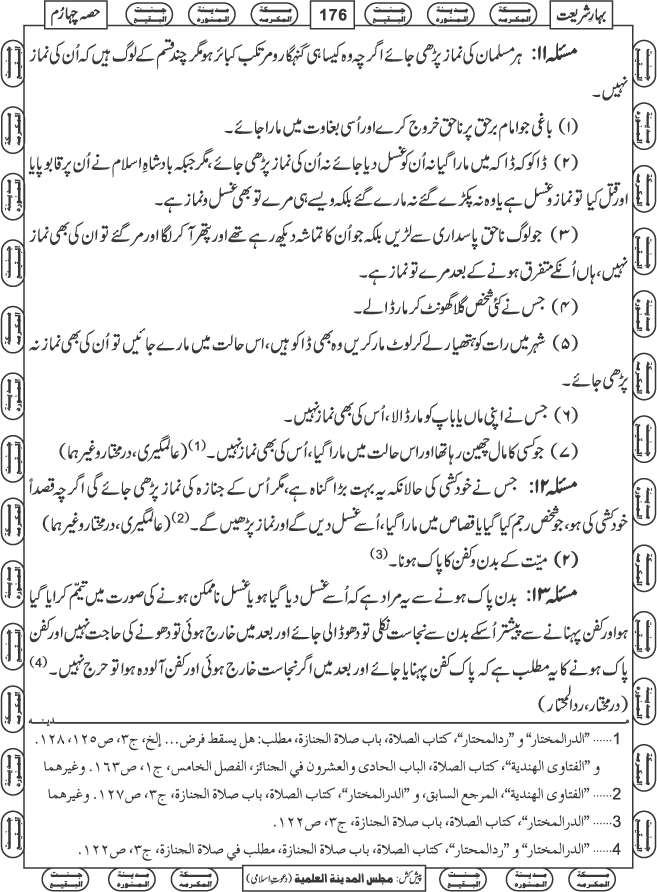 بہارِ شریعت
مکۃ المکرمہ
مدینۃ المنورہ
جنت البقیع
176
مکۃ المکرمہ
مدینۃ المنورہ
جنت البقیع
حصہ چہارم
مسئلہ ۱۱: ہر مسلمان کی نماز پڑھی جائے اگرچہ وہ کیسا ہی گنہگار و مرتکب کبائر ہو مگر چند قسم کے لوگ ہیں کہ اُن کی نماز
نہیں۔
(۱) باغی جو امام برحق پر ناحق خروج کرے اور اُسی بغاوت میں مارا جائے۔
(۲) ڈاکو کہ ڈاکہ میں مارا گیا نہ اُن کو غسل دیا جائے نہ اُن کی نماز پڑھی جائے، مگر جبکہ بادشاہِ اسلام نے اُن پر قابو پایا
اور قتل کیا تو نماز و غسل ہے یا وہ نہ پکڑے گئے نہ مارے گئے بلکہ ویسے ہی مرے تو بھی غسل و نماز ہے۔
(۳) جو لوگ ناحق پاسداری سے لڑیں بلکہ جو اُن کا تماشہ دیکھ رہے تھے اور پتھر آ کر لگا اور مر گئے تو ان کی بھی نماز
نہیں، ہاں اُنکے متفرق ہونے کے بعد مرے تو نماز ہے۔
(۴) جس نے کئی شخص گلا گھونٹ کر مار ڈالے۔
(۵) شہر میں رات کو ہتھیار لے کر لوٹ مار کریں وہ بھی ڈاکو ہیں، اس حالت میں مارے جائیں تو اُن کی بھی نماز نہ
پڑھی جائے۔
(۶) جس نے اپنی ماں یا باپ کو مار ڈالا، اُس کی بھی نماز نہیں۔
(۷) جو کسی کا مال چھین رہا تھا اور اس حالت میں مارا گیا، اُس کی بھی نماز نہیں۔(1) (عالمگیری، درمختار وغیرہما)
مسئلہ ۱۲: جس نے خودکشی کی حالانکہ یہ بہت بڑا گناہ ہے، مگر اُس کے جنازہ کی نماز پڑھی جائے گی اگرچہ قصداً
خودکشی کی ہو، جو شخص رجم کیا گیا یا قصاص میں مارا گیا، اُسے غسل دیں گے اور نماز پڑھیں گے۔(2) (عالمگیری، درمختار وغیرہما)
(۲) میّت کے بدن و کفن کا پاک ہونا۔(3)
مسئلہ ۱۳: بدن پاک ہونے سے یہ مراد ہے کہ اُسے غسل دیا گیا ہو یا غسل ناممکن ہونے کی صورت میں تیمّم کرایا گیا
ہو اور کفن پہنانے سے پیشتر اُسکے بدن سے نجاست نکلی تو دھو ڈالی جائے اور بعد میں خارج ہوئی تو دھونے کی حاجت نہیں اور کفن
پاک ہونے کا یہ مطلب ہے کہ پاک کفن پہنایا جائے اور بعد میں اگر نجاست خارج ہوئی اور کفن آلودہ ہوا تو حرج نہیں۔(4)
(درمختار، ردالمحتار)
1...... "الدرالمختار" و "ردالمحتار"، کتاب الصلاۃ، باب صلاۃ الجنازۃ، مطلب: هل یسقط فرض... إلخ، ج٣، ص١٢٥، ١٢٨.
و "الفتاوی الهندیة"، کتاب الصلاۃ، الباب الحادی والعشرون فی الجنائز، الفصل الخامس، ج١، ص١٦٣. وغیرهما
2...... "الفتاوی الهندیة"، المرجع السابق، و "الدرالمختار"، کتاب الصلاۃ، باب صلاۃ الجنازۃ، ج٣، ص١٢٧. وغیرهما
3...... "الدرالمختار"، کتاب الصلاۃ، باب صلاۃ الجنازۃ، ج٣، ص١٢٢.
4...... "الدرالمختار" و "ردالمحتار"، کتاب الصلاۃ، باب صلاۃ الجنازۃ، مطلب فی صلاۃ الجنازۃ، ج٣، ص١٢٢.
پیش کش: مجلس المدینة العلمیة (دعوتِ اسلامی)